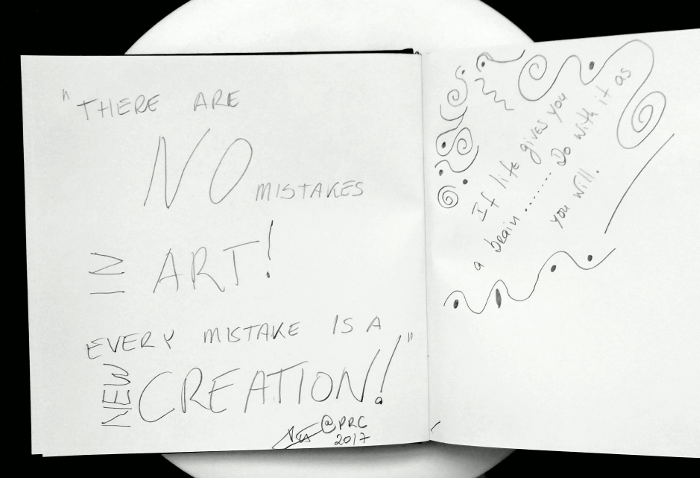 "THERE ARE
NO MISTAKES
IN ART!
EVERY MISTAKE IS A
NEW CREATION!"
@PRC
2017
If life gives you
a brain........ Do with it as
you will.